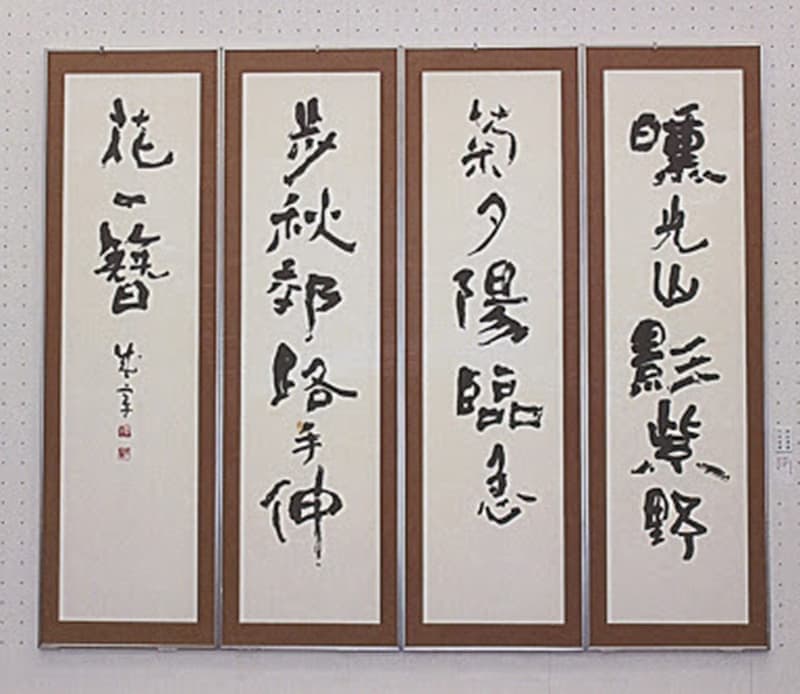 曛光山影紫野
菊夕陽臨急
歩秋郊路手伸
花一簪